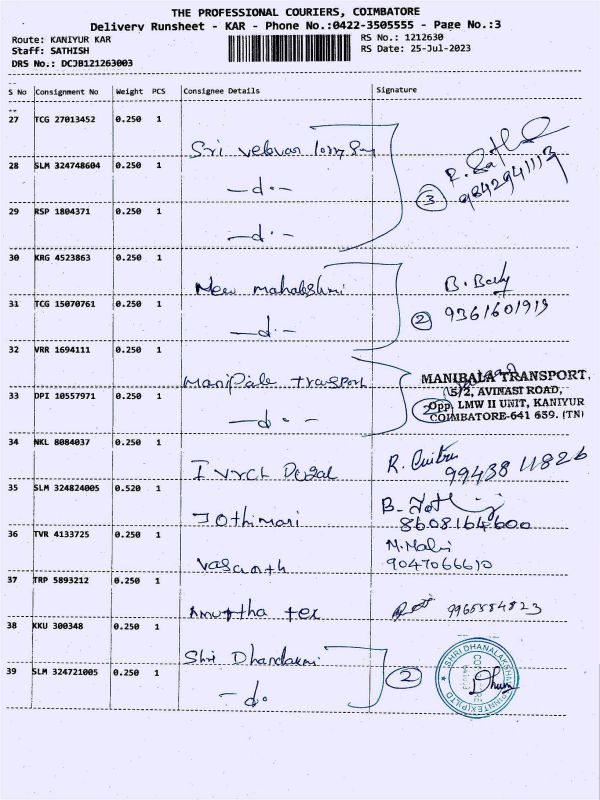 THE PROFESSIONAL COURIERS, COIMBATORE
Delivery Runsheet - KAR - Phone No.:0422-3505555 - Page No.:3
Route: KANIYUR KAR
RS No.: 1212630
Staff: SATHISH
RS Date: 25-Jul-2023
DRS No.: DCJB121263003
S No Consignment No Weight PCS Consignee Details Signature
27 TCG 27013452 0.250 1
Sri velavan lorry
28 SLM 324748604 0.250 1
-d.-
3
9842941113
29 RSP 1804371 0.250 1
-d.-
30 KRG 4523863 0.250 1
New mahalakshmi
31 TCG 15070761 0.250 1
-d.-
2
9361601919
32 VRR 1694111 0.250 1
Manibala transport
MANIBALA TRANSPORT,
5/2, AVINASI ROAD,
33 DPI 10557971 0.250 1
-d.-
2
Opp, LMW II UNIT, KANIYUR
COIMBATORE-641 659. (TN)
34 NKL 8084037 0.250 1
R.
9943811826
35 SLM 324824005 0.520 1
Jothimani
B.
8608164600
36 TVR 4133725 0.250 1
Vasanth
M.Mali
9047066610
37 TRP 5893212 0.250 1
Amurtha tex
9965554823
38 KKU 300348 0.250 1
Shri Dhanlaxmi
39 SLM 324721005 0.250 1
-d.
2
SHRI DHANALAKSHMI SPINNTEX (P) LTD